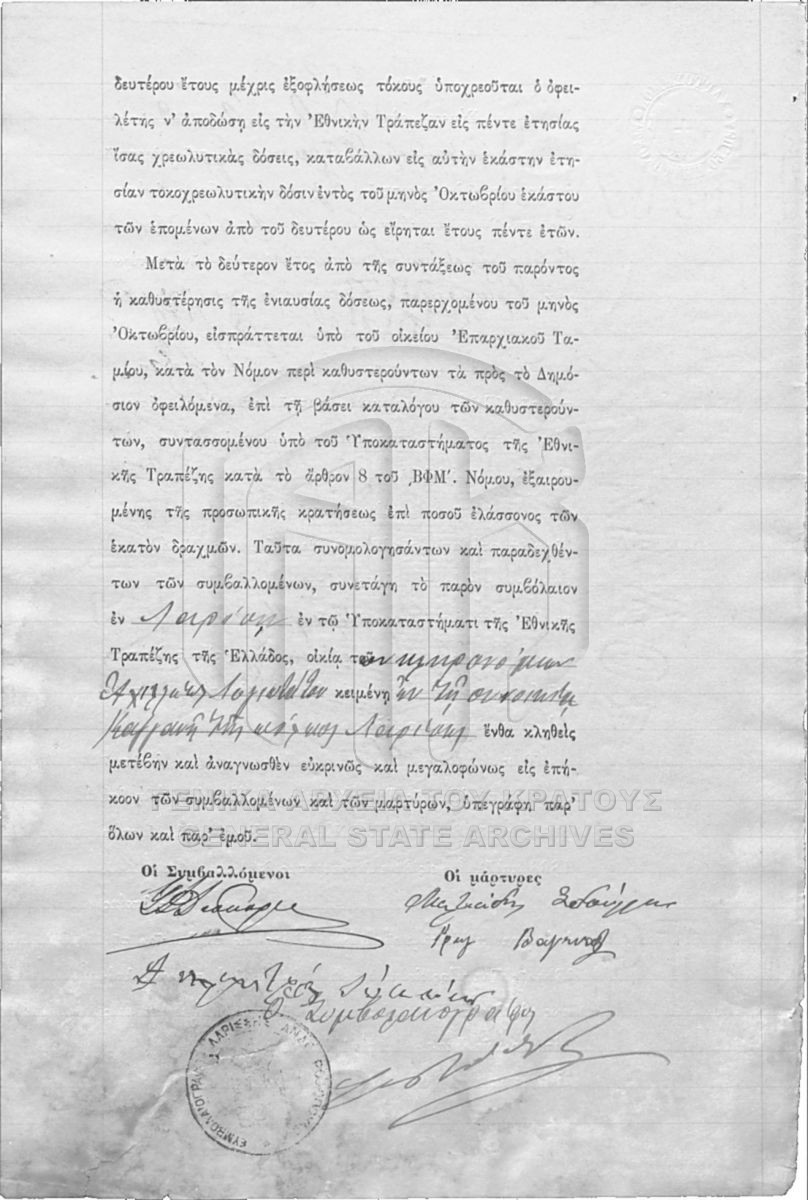 δευτέρου ἔτους μέχρις ἐξοφλήσεως τόκους ὑποχρεοῦται ὁ ὀφει-
λέτης ν' ἀποδώσῃ εἰς τὴν Ἐθνικὴν Τράπεζαν εἰς πέντε ἐτησίας
ἴσας χρεωλυτικὰς δόσεις, καταβάλλων εἰς αὐτὴν ἑκάστην ἐτη-
σίαν τοκοχρεωλυτικὴν δόσιν ἐντὸς τοῦ μηνὸς Ὀκτωβρίου ἑκάστου
τῶν ἑπομένων ἀπὸ τοῦ δευτέρου ὡς εἴρηται ἔτους πέντε ἐτῶν.
Μετὰ τὸ δεύτερον ἔτος ἀπὸ τῆς συντάξεως τοῦ παρόντος
ἡ καθυστέρησις τῆς ἐνιαυσίας δόσεως, παρερχομένου τοῦ μηνὸς
Ὀκτωβρίου, εἰσπράττεται ὑπὸ τοῦ οἰκείου Ἐπαρχιακοῦ Τα-
μείου, κατὰ τὸν Νόμον περὶ καθυστερούντων τὰ πρὸς τὸ Δημό-
σιον ὀφειλόμενα, ἐπὶ τῇ βάσει καταλόγου τῶν καθυστερούν-
των, συντασσομένου ὑπὸ τοῦ Ὑποκαταστήματος τῆς Ἐθνι-
κῆς Τραπέζης κατὰ τὸ ἄρθρον 8 τοῦ ͵ΒΦΜ΄. Νόμου, ἐξαιρου-
μένης τῆς προσωπικῆς κρατήσεως ἐπὶ ποσοῦ ἐλάσσονος τῶν
ἑκατὸν δραχμῶν. Ταῦτα συνομολογησάντων καὶ παραδεχθέν-
των τῶν συμβαλλομένων, συνετάγη τὸ παρὸν συμβόλαιον
ἐν Λαρίσῃ ἐν τῷ Ὑποκαταστήματι τῆς Ἐθνικῆς
Τραπέζης τῆς Ἑλλάδος, οἰκίᾳ τῶν κληρονόμων
κειμένῃ ἐν τῇ συνοικίᾳ
τῆς πόλεως Λαρίσης ἔνθα κληθεὶς
μετέβην καὶ ἀναγνωσθὲν εὐκρινῶς καὶ μεγαλοφώνως εἰς ἐπή-
κοον τῶν συμβαλλομένων καὶ τῶν μαρτύρων, ὑπεγράφη παρ'
ὅλων καὶ παρ' ἐμοῦ.
ΓΕΝΙΚΑ ΑΡΧΕΙΑ ΤΟΥ ΚΡΑΤΟΥΣ
GENERAL STATE ARCHIVES
Οἱ Συμβαλλόμενοι
Οἱ μάρτυρες
Ὁ Συμβολαιογράφος